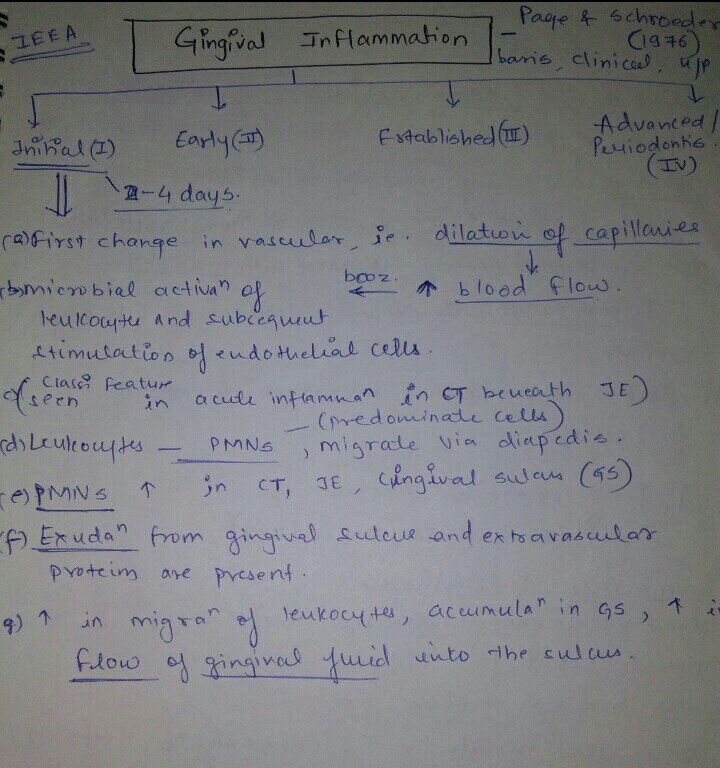 IEEA
Gingival Inflammation
- Page & Schroeder
(1976)
basis, clinical, H/P
Initial (I)
Early (II)
Established (III)
Advanced/
Periodontis.
(IV)
2-4 days.
(a) First change in vascular, ie. dilation of capillaries
(b) microbial activaⁿ of ← booz. ↑ blood flow.
leukocyte and subsequent
stimulation of endothelial cells.
c) (Classi feature
seen in acute inflammaⁿ in CT beneath JE)
- (predominate cells)
(d) Leukocytes - PMNs, migrate via diapedis.
(e) PMNs ↑ in CT, JE, Gingival sulcus (GS)
(f) Exudaⁿ from gingival sulcus and extravascular
proteins are present.
g) ↑ in migraⁿ of leukocytes, accumulaⁿ in GS, ↑ i
flow of gingival fluid into the sulcus.